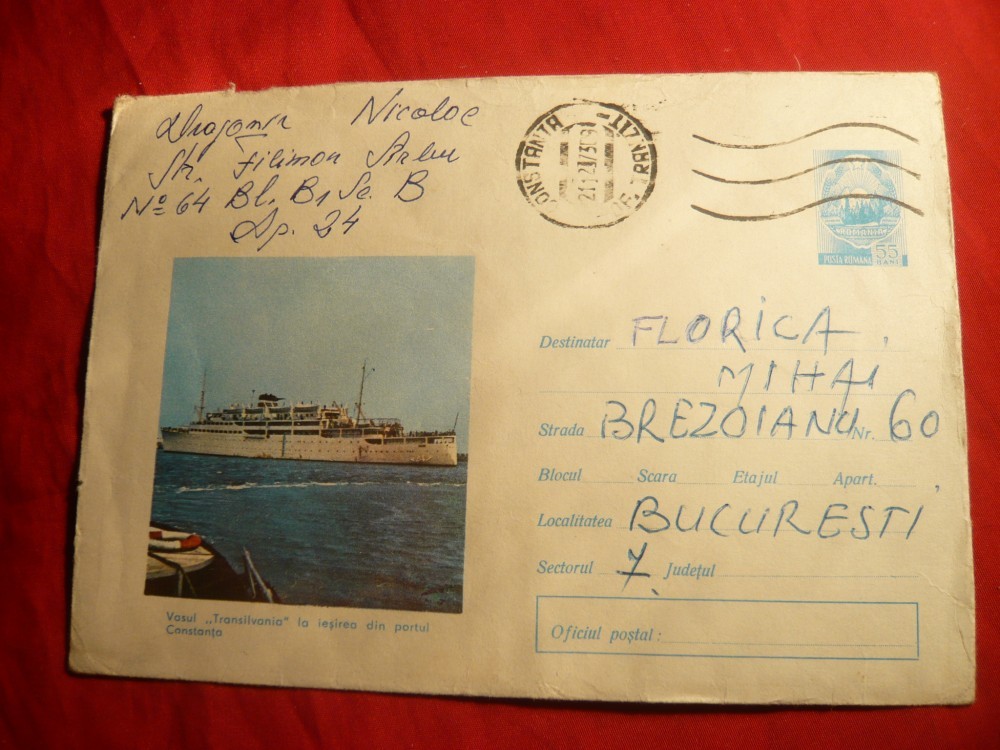 Nicolae
Str. Filimon Sârbu
Nº 64 Bl. B1 Sc. B
Ap. 24
CONSTANȚA
TRANZIT
ROMANIA
POSTA ROMANA 55 BANI
Destinatar FLORICA
MIHAI
Strada BREZOIANU Nr. 60
Blocul Scara Etajul Apart.
Localitatea BUCURESTI
Sectorul 7 Județul
Oficiul poștal :
Vasul „Transilvania" la ieșirea din portul
Constanța